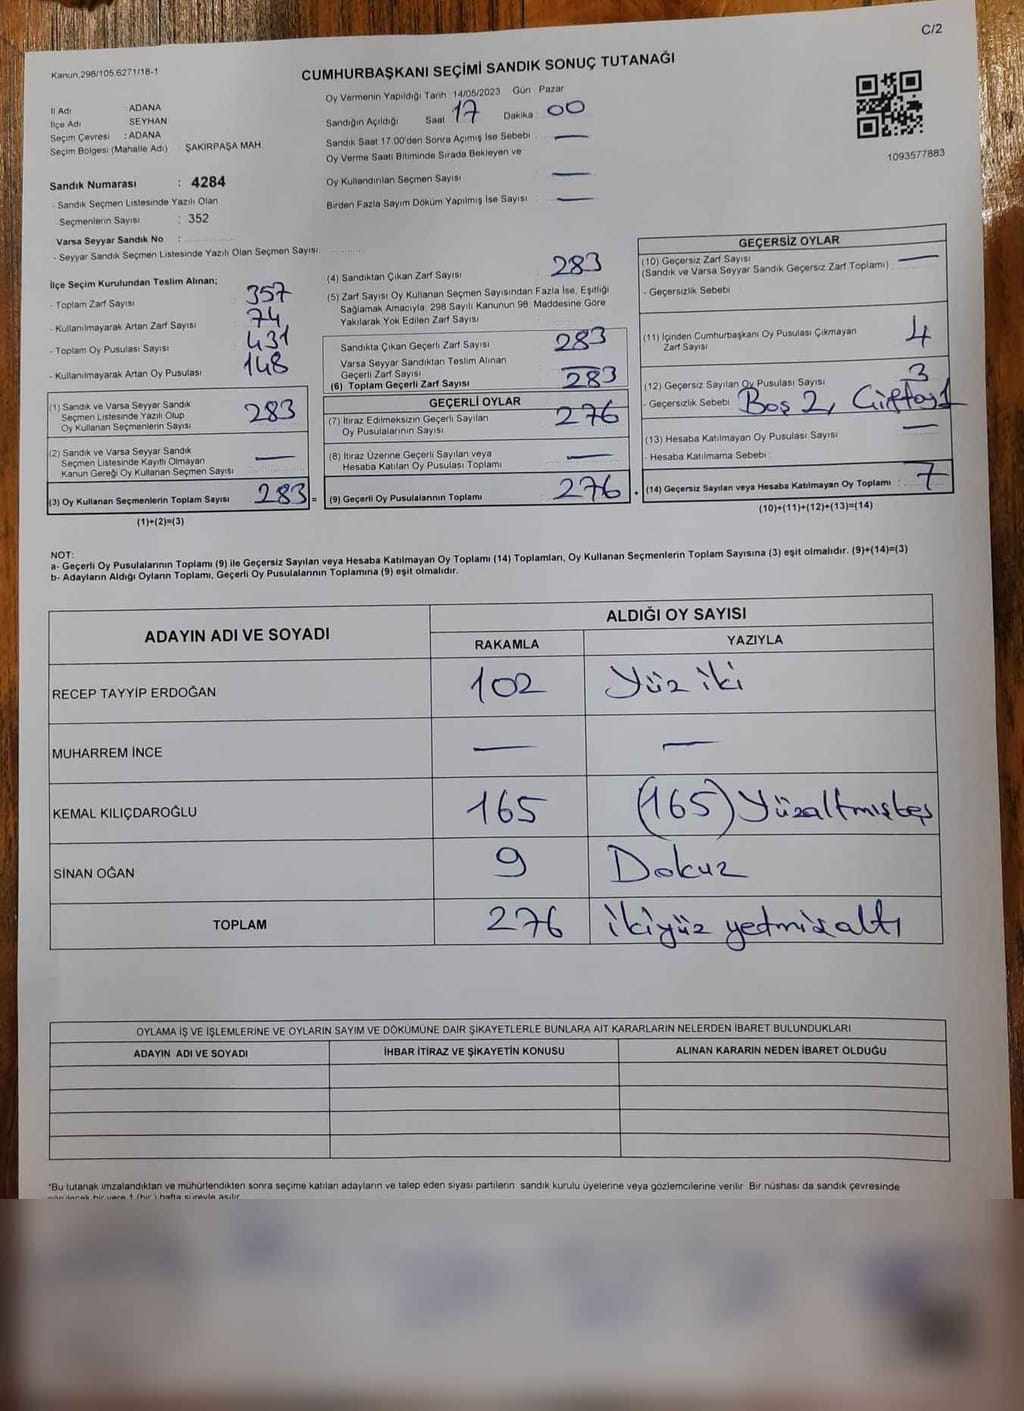 C/2
Kanun,298/105,6271/18-1
CUMHURBAŞKANI SEÇİMİ SANDIK SONUÇ TUTANAĞI
İl Adı ADANA
İlçe Adı SEYHAN
Seçim Çevresi : ADANA
Seçim Bölgesi (Mahalle Adı) ŞAKİRPAŞA MAH.
Oy Vermenin Yapıldığı Tarih 14/05/2023 Gün Pazar
Sandığın Açıldığı Saat 17 Dakika 00
Sandık Saat 17:00'den Sonra Açımış İse Sebebi —
Oy Verme Saati Bitiminde Sırada Bekleyen ve
Oy Kullandırılan Seçmen Sayısı —
Birden Fazla Sayım Döküm Yapılmış İse Sayısı —
1093577883
Sandık Numarası : 4284
- Sandık Seçmen Listesinde Yazılı Olan
Seçmenlerin Sayısı : 352
Varsa Seyyar Sandık No :
- Seyyar Sandık Seçmen Listesinde Yazılı Olan Seçmen Sayısı:
İlçe Seçim Kurulundan Teslim Alınan;
- Toplam Zarf Sayısı 357
- Kullanılmayarak Artan Zarf Sayısı 74
- Toplam Oy Pusulası Sayısı 431
- Kullanılmayarak Artan Oy Pusulası 148
(1) Sandık ve Varsa Seyyar Sandık
Seçmen Listesinde Yazılı Olup
Oy Kullanan Seçmenlerin Sayısı 283
(2) Sandık ve Varsa Seyyar Sandık
Seçmen Listesinde Kayıtlı Olmayan
Kanun Gereği Oy Kullanan Seçmen Sayısı —
(3) Oy Kullanan Seçmenlerin Toplam Sayısı 283 =
(1)+(2)=(3)
(4) Sandıktan Çıkan Zarf Sayısı 283
(5) Zarf Sayısı Oy Kullanan Seçmen Sayısından Fazla İse, Eşitliği
Sağlamak Amacıyla, 298 Sayılı Kanunun 98. Maddesine Göre
Yakılarak Yok Edilen Zarf Sayısı
Sandıkta Çıkan Geçerli Zarf Sayısı 283
Varsa Seyyar Sandıktan Teslim Alınan
Geçerli Zarf Sayısı —
(6) Toplam Geçerli Zarf Sayısı 283
GEÇERLİ OYLAR
(7) İtiraz Edilmeksizin Geçerli Sayılan
Oy Pusulalarının Sayısı 276
(8) İtiraz Üzerine Geçerli Sayılan veya
Hesaba Katılan Oy Pusulası Toplamı —
(9) Geçerli Oy Pusulalarının Toplamı 276 +
GEÇERSİZ OYLAR
(10) Geçersiz Zarf Sayısı —
(Sandık ve Varsa Seyyar Sandık Geçersiz Zarf Toplamı)
- Geçersizlik Sebebi
(11) İçinden Cumhurbaşkanı Oy Pusulası Çıkmayan
Zarf Sayısı 4
(12) Geçersiz Sayılan Oy Pusulası Sayısı 3
- Geçersizlik Sebebi Boş 2, Çiftoy 1
(13) Hesaba Katılmayan Oy Pusulası Sayısı —
- Hesaba Katılmama Sebebi
(14) Geçersiz Sayılan veya Hesaba Katılmayan Oy Toplamı : 7
(10)+(11)+(12)+(13)=(14)
NOT:
a- Geçerli Oy Pusulalarının Toplamı (9) ile Geçersiz Sayılan veya Hesaba Katılmayan Oy Toplamı (14) Toplamları, Oy Kullanan Seçmenlerin Toplam Sayısına (3) eşit olmalıdır. (9)+(14)=(3)
b- Adayların Aldığı Oyların Toplamı, Geçerli Oy Pusulalarının Toplamına (9) eşit olmalıdır.
ADAYIN ADI VE SOYADI ALDIĞI OY SAYISI
RAKAMLA YAZIYLA
RECEP TAYYİP ERDOĞAN 102 Yüz iki
MUHARREM İNCE — —
KEMAL KILIÇDAROĞLU 165 (165) Yüzaltmışbeş
SİNAN OĞAN 9 Dokuz
TOPLAM 276 ikiyüz yetmişaltı
OYLAMA İŞ VE İŞLEMLERİNE VE OYLARIN SAYIM VE DÖKÜMÜNE DAİR ŞİKAYETLERLE BUNLARA AİT KARARLARIN NELERDEN İBARET BULUNDUKLARI
ADAYIN ADI VE SOYADI İHBAR İTİRAZ VE ŞİKAYETİN KONUSU ALINAN KARARIN NEDEN İBARET OLDUĞU
*Bu tutanak imzalandıktan ve mühürlendikten sonra seçime katılan adayların ve talep eden siyasi partilerin sandık kurulu üyelerine veya gözlemcilerine verilir. Bir nüshası da sandık çevresinde
görülecek bir yere 1 (bir ) hafta süreyle asılır.